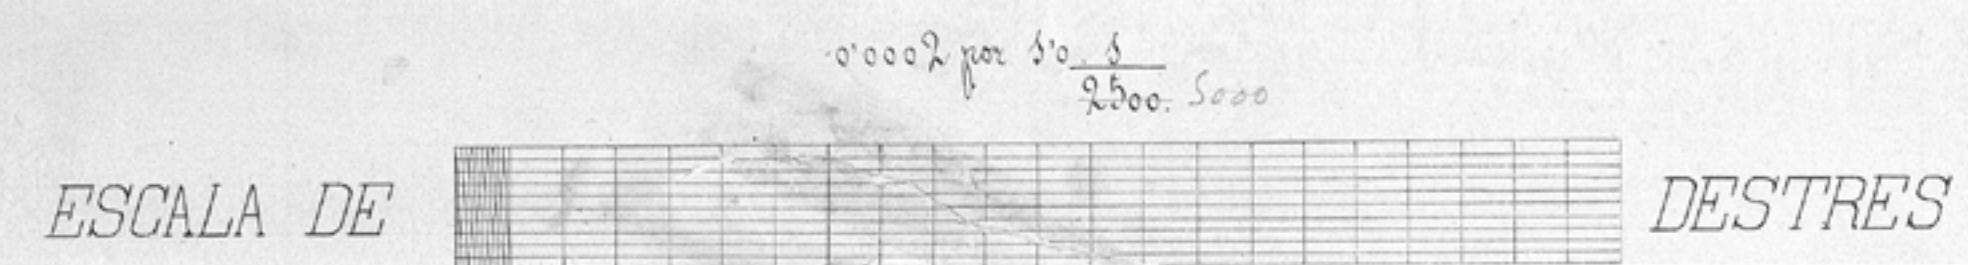 0'0002 por 1'0 1
2500. 5000
ESCALA DE DESTRES